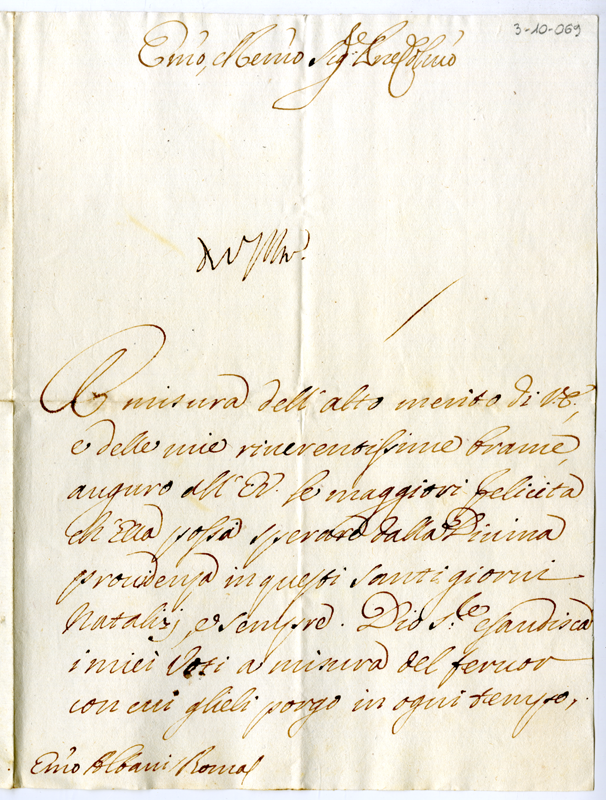 3-10-069
Em̃o, e Rem̃o Sig.re
A misura dell'alto merito di V.E.,
e delle mie riverentissime brame,
auguro all'E.V. le maggiori felicità
ch'Ella possa sperare dalla Divina
providenza in questi santi giorni
Natalizj, e sempre. Dio s.le esaudisca
i miei Voti a misura del fervor
con cui glieli porgo in ogni tempo,
Em̃o Albani Roma